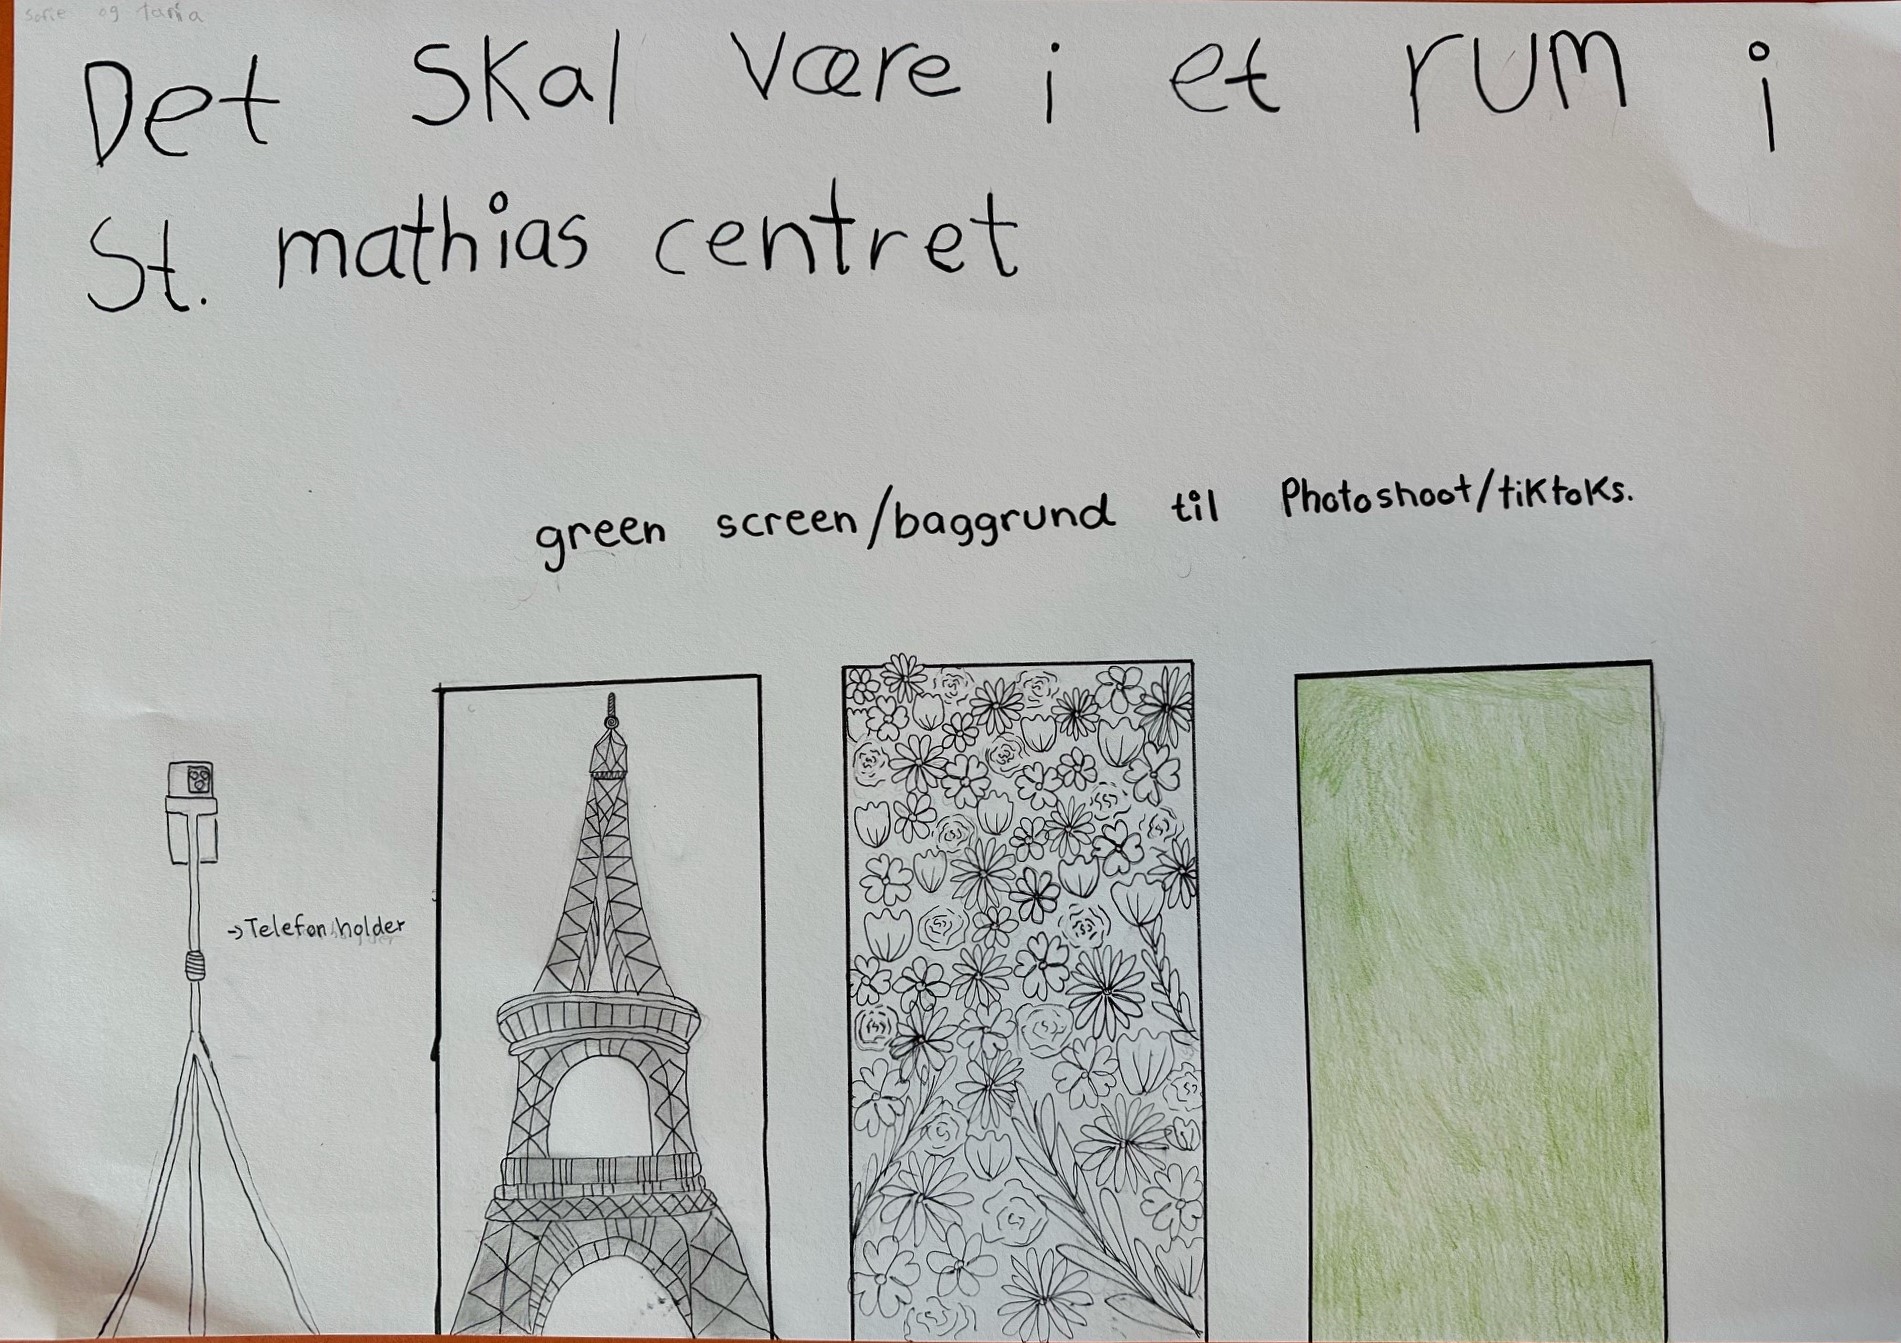 sofie og tanja
Det skal være i et rum i
St. mathias centret
green screen/baggrund til Photoshoot/tiktoks.
→Telefon holder